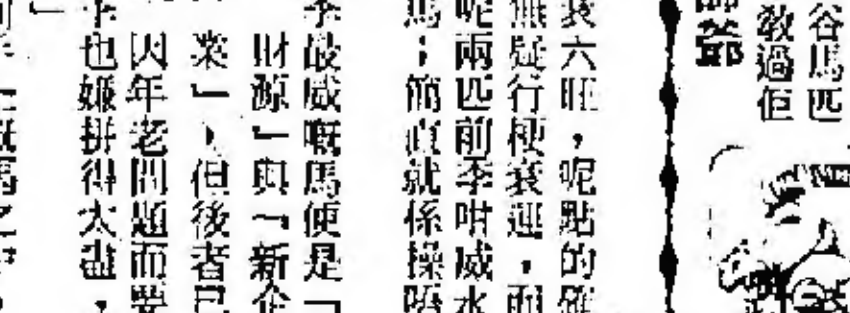 谷馬匹
教過佢
衰六旺，呢點的確
無疑行梗衰運，而
呢兩匹前季咁威水
馬；簡直就係操唔
季最威嘅馬便是「
財源」與「新企
業」，但後者已
因年老問題而要
季也嫌拼得太盡，